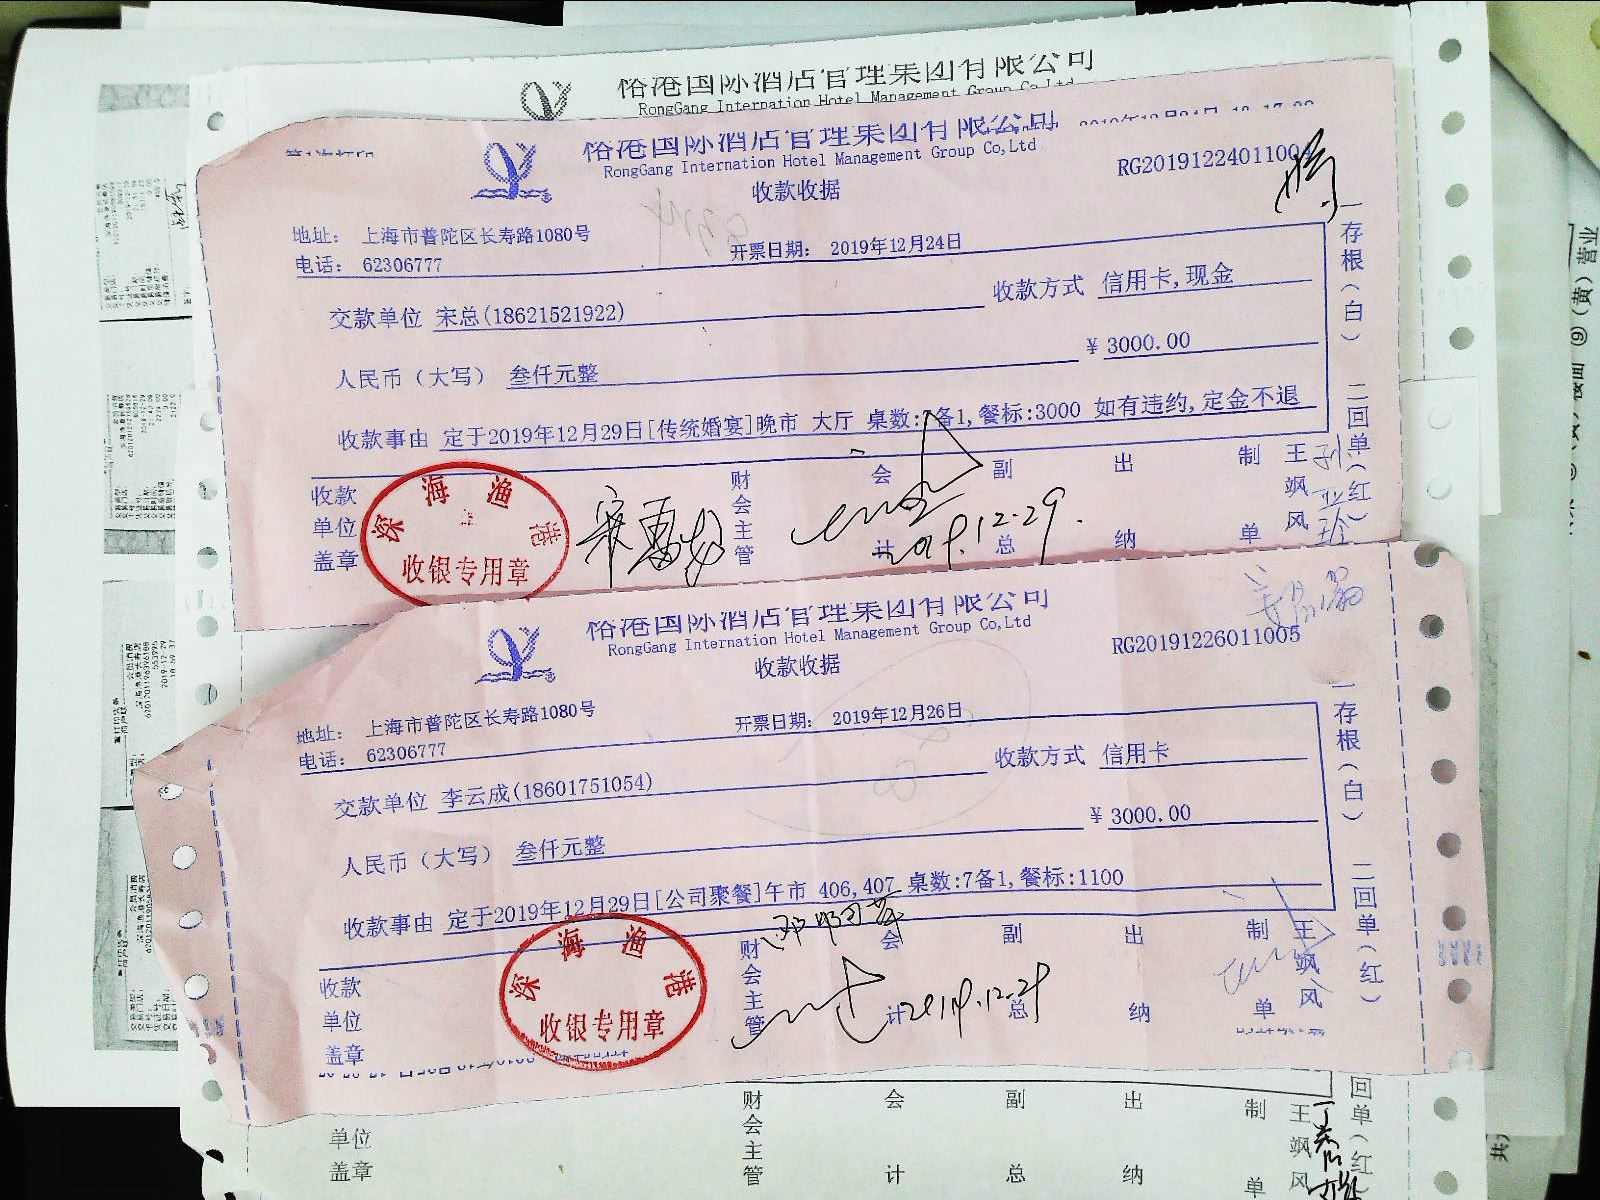 裕港国际酒店管理集团有限公司
RongGang Internation Hotel Management Group Co,Ltd
裕港国际酒店管理集团有限公司
RongGang Internation Hotel Management Group Co,Ltd
RG20191224011004
收款收据
地址： 上海市普陀区长寿路1080号
电话： 62306777
开票日期： 2019年12月24日
交款单位 宋总(18621521922)
收款方式 信用卡,现金
人民币（大写） 叁仟元整
¥ 3000.00
收款事由 定于2019年12月29日[传统婚宴]晚市 大厅 桌数:7备1,餐标:3000 如有违约,定金不退
收款单位盖章
深海渔港
收银专用章
财会主管
会计
副总
出纳
制单
王飒风
2019.12.29.
一存根（白）
二回单（红）
裕港国际酒店管理集团有限公司
RongGang Internation Hotel Management Group Co,Ltd
RG20191226011005
收款收据
地址： 上海市普陀区长寿路1080号
电话： 62306777
开票日期： 2019年12月26日
交款单位 李云成(18601751054)
收款方式 信用卡
人民币（大写） 叁仟元整
¥ 3000.00
收款事由 定于2019年12月29日[公司聚餐]午市 406,407 桌数:7备1,餐标:1100
收款单位盖章
深海渔港
收银专用章
财会主管
会计
副总
出纳
制单
王飒风
2019.12.29
一存根（白）
二回单（红）
单位盖章
财会主管
会计
副总
出纳
制单
王飒风
回单（红）